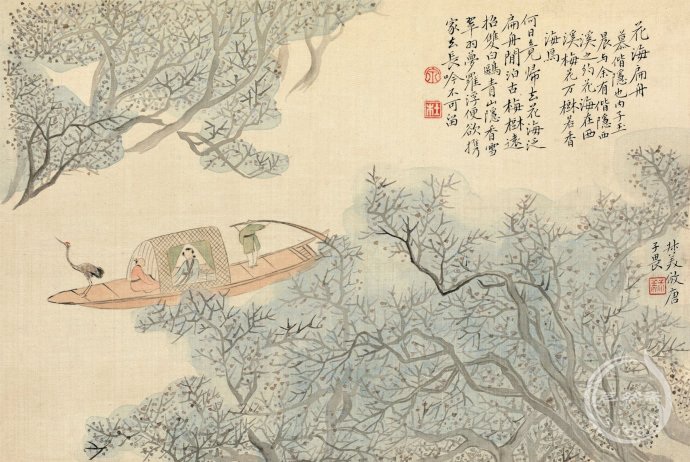 花海扁舟
慕偕隱也內子玉
晨与余有偕隱西
溪之約花海在西
溪梅花万樹若香
海焉
何日竟歸去花海泛
扁舟閒泊古梅樹遠
招雙白鷗青山隱香雪
翠羽夢羅浮便欲携
家去長吟不可留
美倣唐
子畏